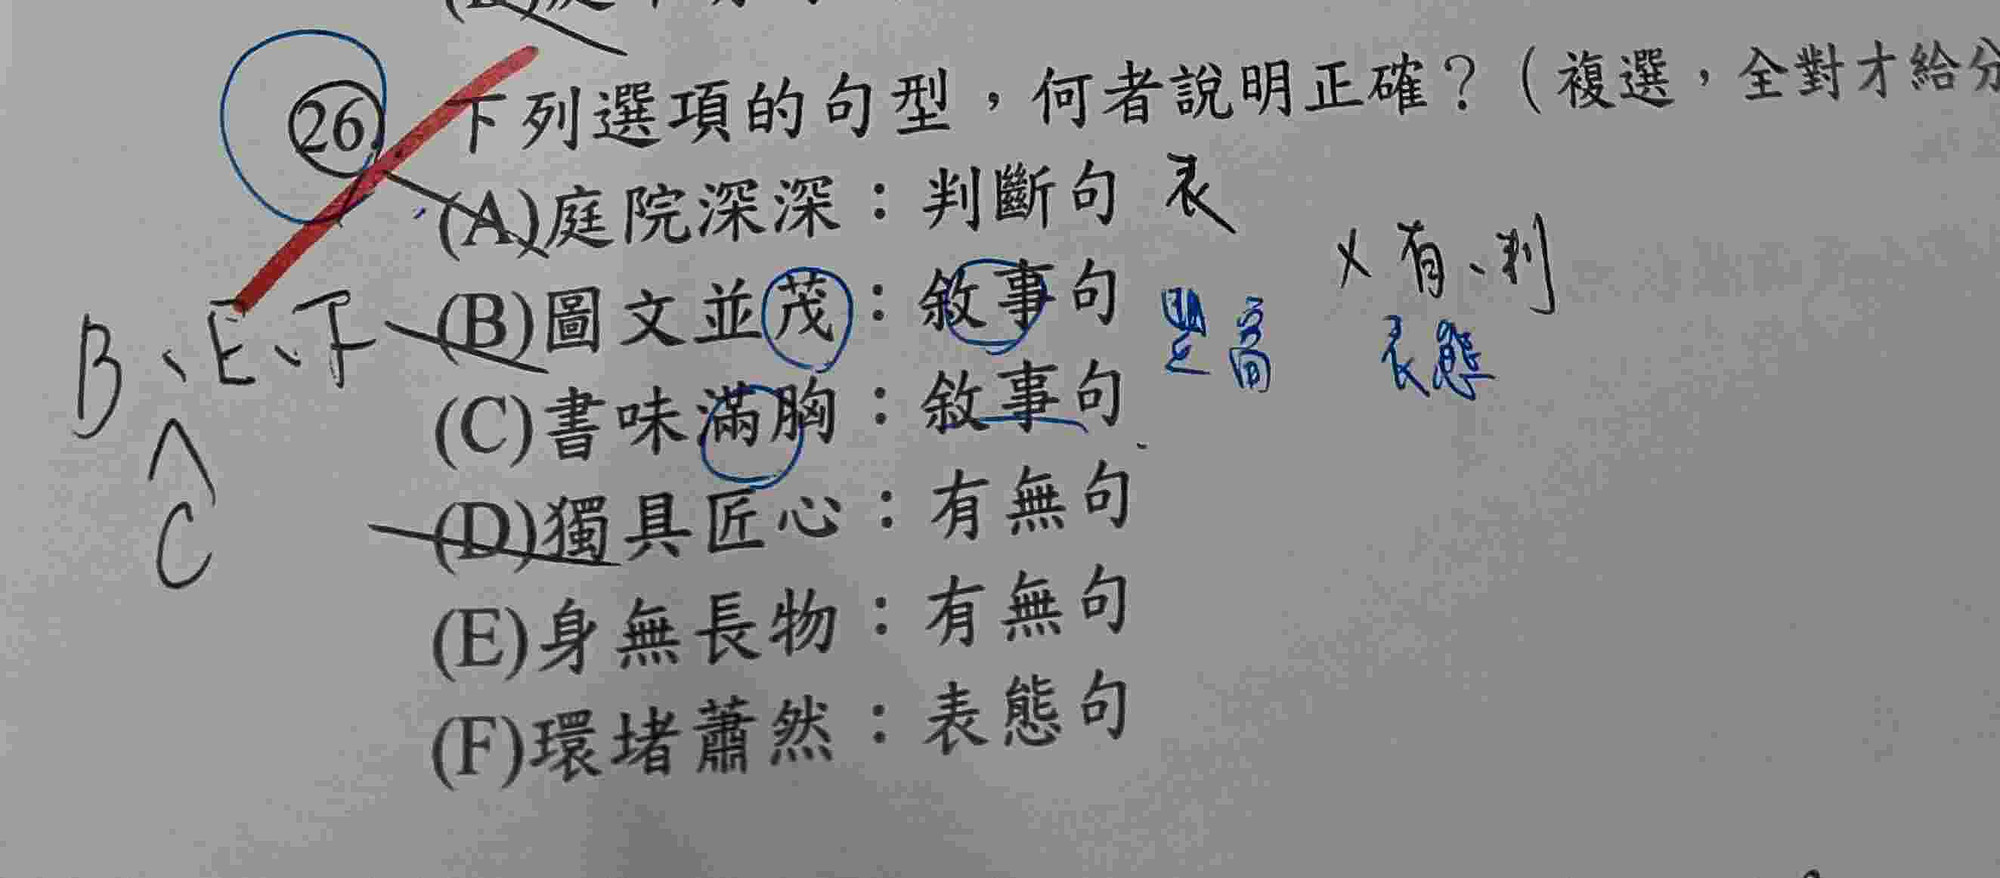 26. 下列選項的句型，何者說明正確？（複選，全對才給分
(A)庭院深深：判斷句 表
(B)圖文並茂：敘事句 豐富 表態
x 有、判
(C)書味滿胸：敘事句
(D)獨具匠心：有無句
(E)身無長物：有無句
(F)環堵蕭然：表態句
B、E、F
C